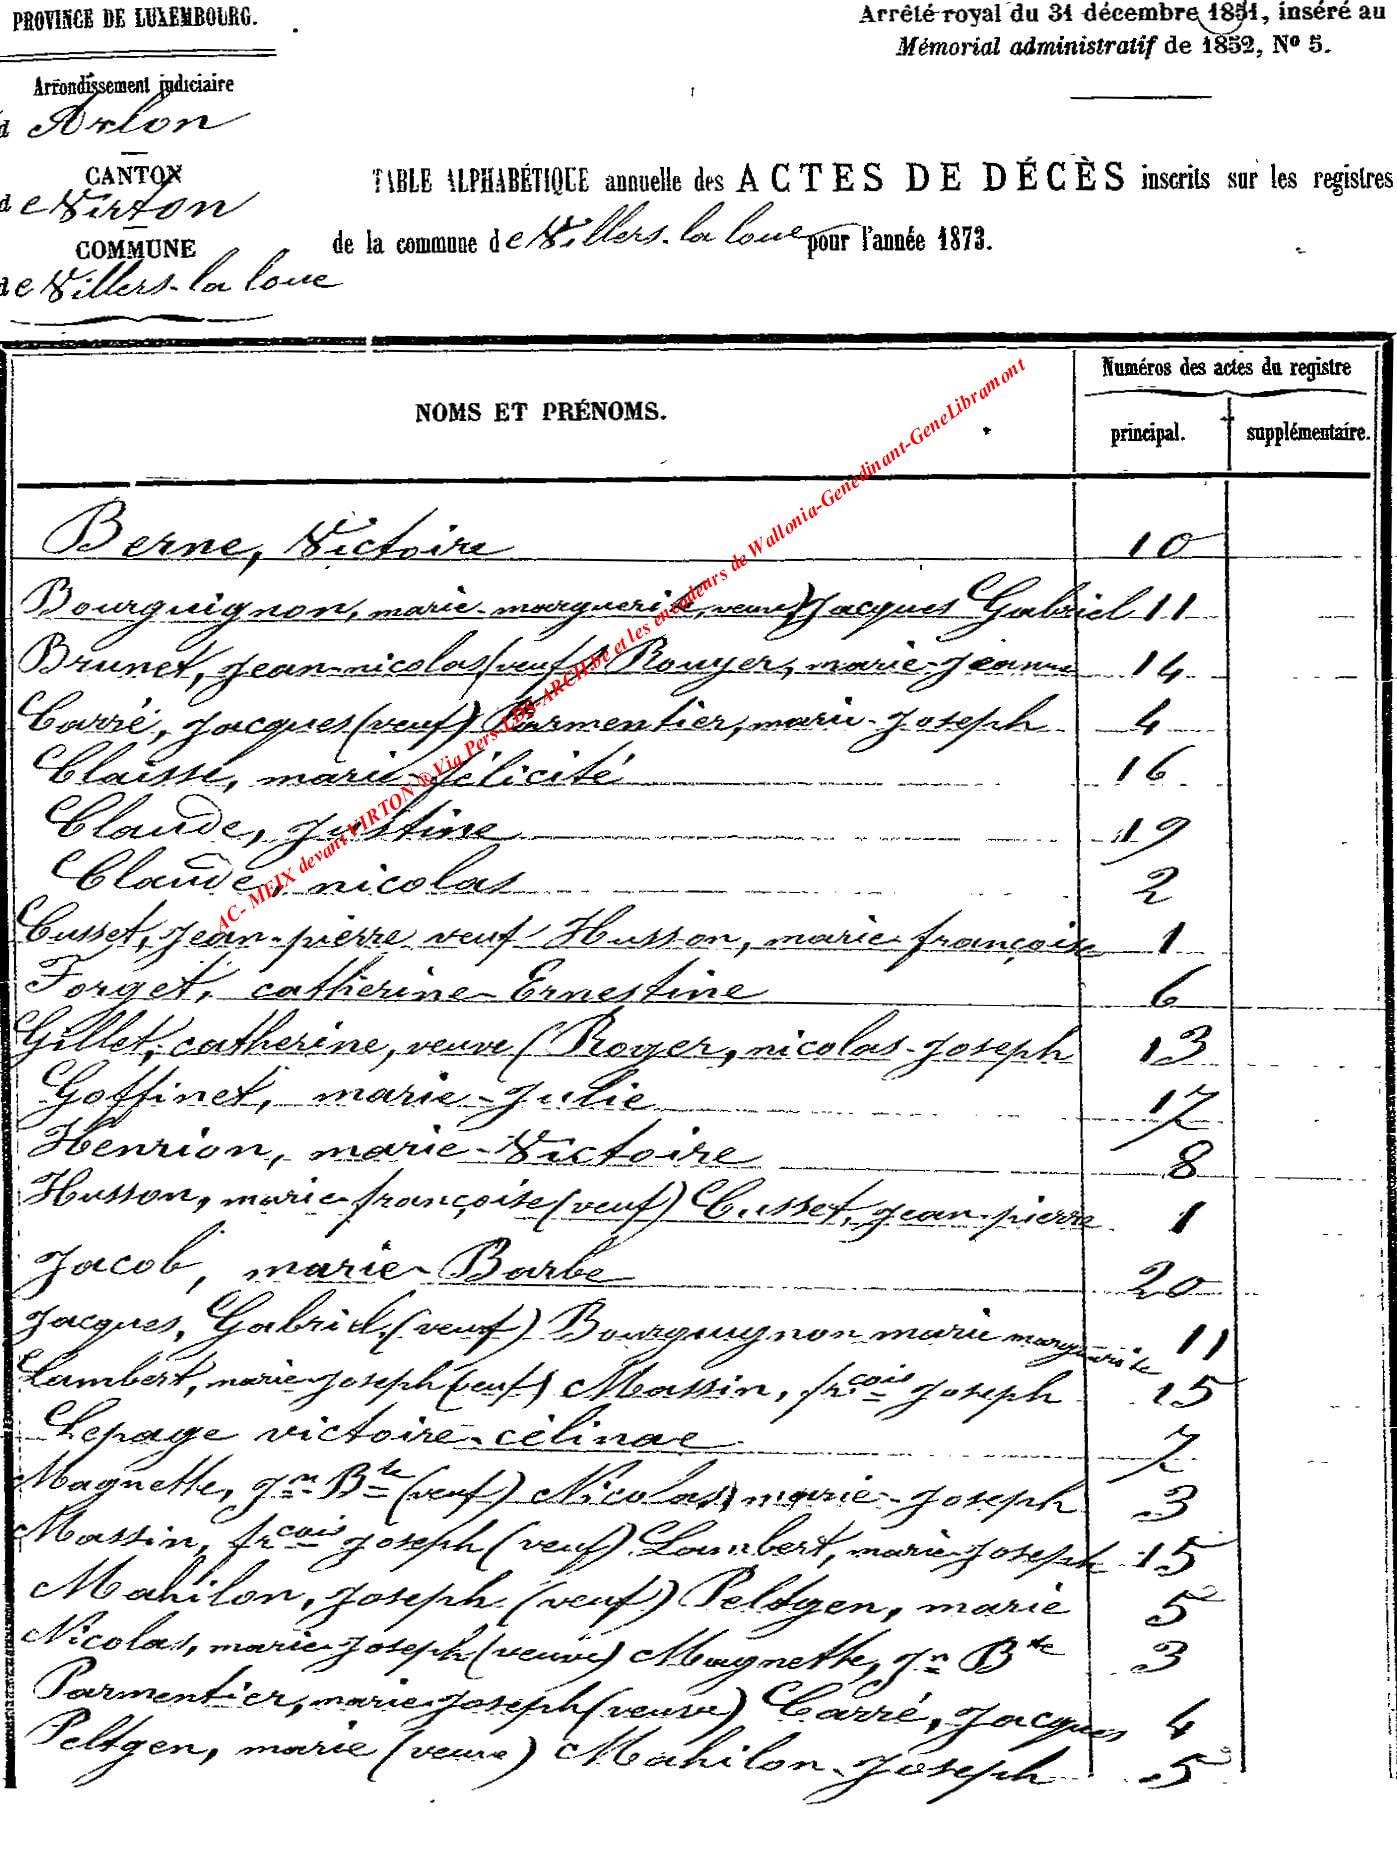 PROVINCE DE LUXEMBOURG.
Arrêté royal du 31 décembre 1851, inséré au
Mémorial administratif de 1852, Nº 5.
Arrondissement judiciaire
d Arlon
CANTON
de Virton
COMMUNE
de Villers-la loue
TABLE ALPHABÉTIQUE annuelle des ACTES DE DÉCÈS inscrits sur les registres
de la commune de Villers-la loue pour l'année 1873.
NOMS ET PRÉNOMS.
Numéros des actes du registre
principal. supplémentaire.
AC- MEIX devant VIRTON ® Via Pers-LDS-ARCH.be et les encodeurs de Wallonia-Genedinant-GeneLibramont
Berne, Victoire 10
Bourguignon, marie-marguerite, veuve) Jacques Gabriel 11
Brunet, Jean-nicolas (veuf) Rouyer, marie-Jeanne 14
Carré, Jacques (veuf) Parmentier, marie-Joseph 4
Claisse, marie-félicité 16
Claude, Justine 19
Claude, nicolas 2
Cusset, Jean-pierre veuf Husson, marie françoise 1
Forget, catherine-Ernestine 6
Gillet, catherine, veuve (Royer, nicolas-Joseph 13
Goffinet, marie-Julie 17
Henrion, marie-Victoire 8
Husson, marie françoise (veuf) Cusset, Jean-pierre 1
Jacob, marie-Barbe 20
Jacques, Gabriel, (veuf) Bourguignon marie marguerite 11
Lambert, marie Joseph (veuf) Massin, fr.çois Joseph 15
Lepage victoire-célinae 7
Magnette, Jn Bte (veuf) Nicolas, marie-Joseph 3
Massin, fr.çois Joseph (veuf) Lambert, marie-Joseph 15
Mahilon, Joseph (veuf) Peltgen, marie 5
Nicolas, marie Joseph (veuve) Magnette, Jn Bte 3
Parmentier, marie-Joseph (veuve) Carré, Jacques 4
Peltgen, marie (veuve) Mahilon-Joseph 5